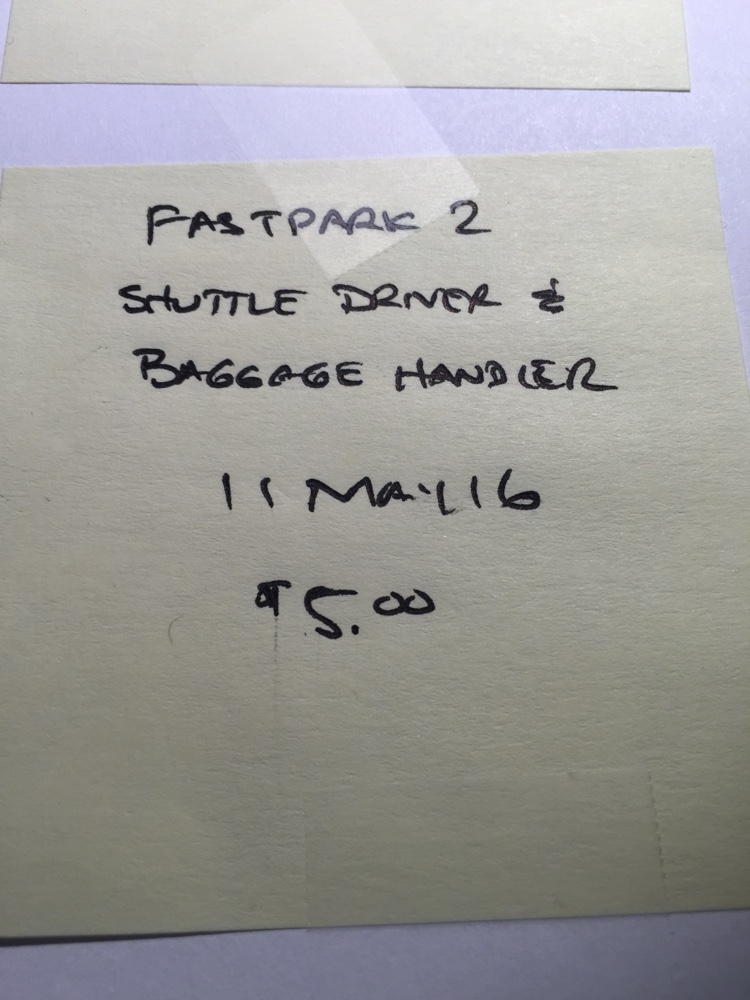 FASTPARK 2
SHUTTLE DRIVER &
BAGGAGE HANDLER
11 MAY 16
$5.00